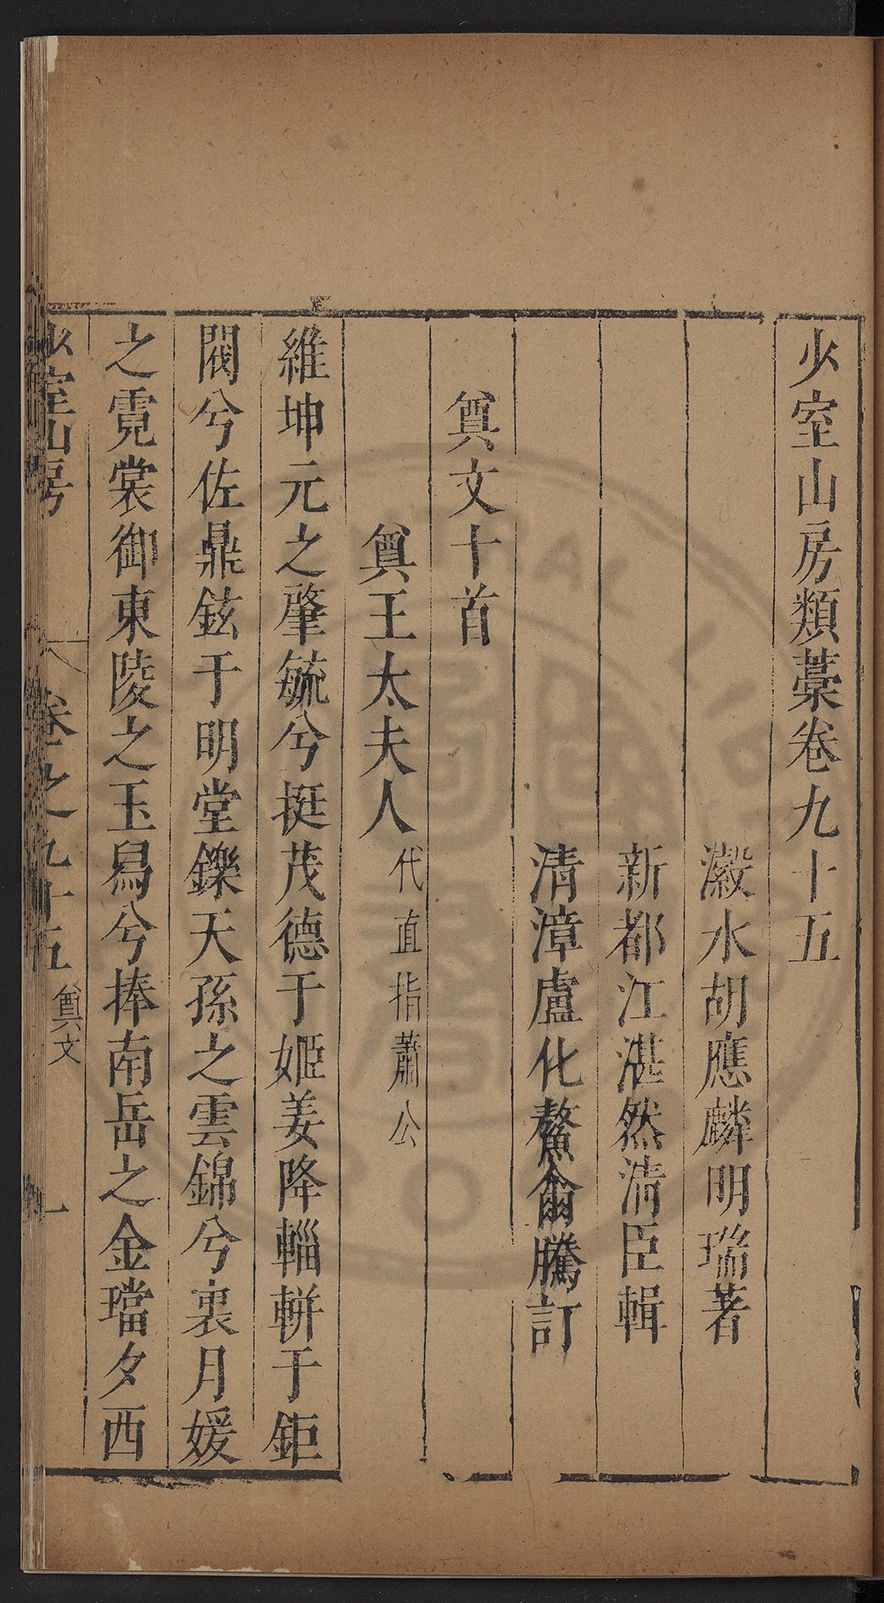 少室山房類藁卷九十五
瀫水胡應麟明瑞著
新都江湛然清臣輯
清漳盧化鰲爾騰訂
奠文十首
奠王太夫人代直指蕭公
維坤元之肇毓兮挺茂德于姬姜降輜軿于鉅
閥兮佐鼎鉉于明堂鑠天孫之雲錦兮裛月媛
之霓裳御東陵之玉舄兮捧南岳之金璫夕西
少室山房
卷之九十五
奠文
一